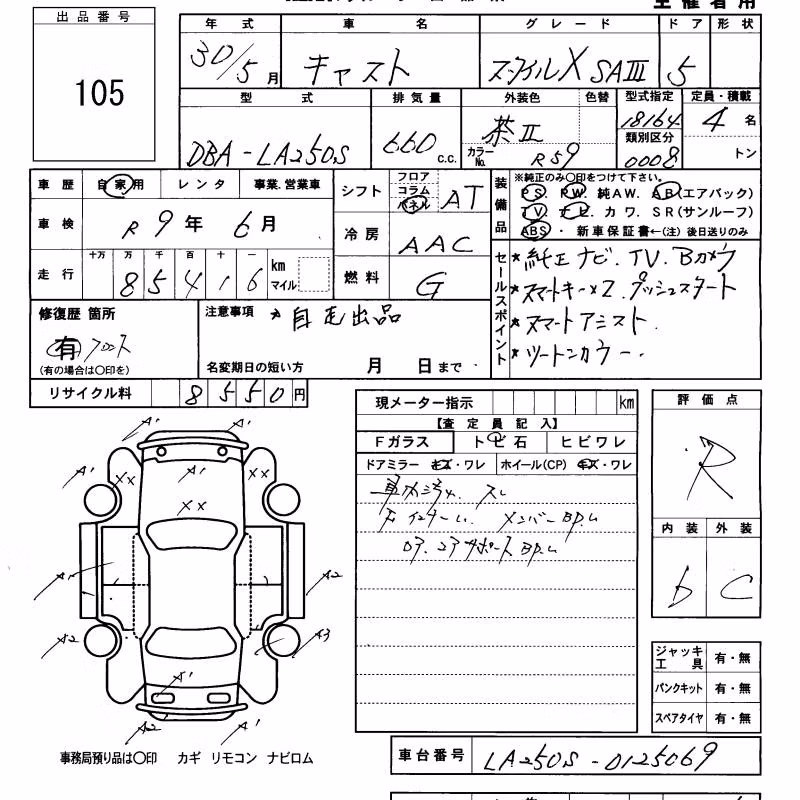 主催者用
出品番号
105
年式 車名 グレード ドア 形状
30/5月 キャスト スタイルX SAIII 5
型式 排気量 外装色 色替 型式指定 定員・積載
DBA-LA250S 660 c.c. 茶II 18164 4名
カラーNo. R59 類別区分 0008 トン
車歴 自家用 レンタ 事業.営業車
車検 R9年 6月
走行 十万 万 千 百 十 一 km マイル
85416
シフト フロア コラム パネル AT
冷房 AAC
燃料 G
装備品 ※純正のみ○印をつけて下さい。
PS. PW. 純AW. AB(エアバック)
TV. ナビ. カワ. SR(サンルーフ)
ABS・新車保証書←(注)後日送りのみ
セールスポイント
*純正ナビ.TV.Bカメラ
*スマートキー×2.プッシュスタート
*スマートアシスト.
*ツートンカラー.
修復歴 箇所
有 フロント
(有の場合は○印を)
注意事項 *自宅出品
名変期日の短い方 月 日まで
リサイクル料 8550円
現メーター指示 km
【査定員記入】
Fガラス トビ石 ヒビワレ
ドアミラー キズ・ワレ ホイール(CP) キズ・ワレ
車内汚れ. スレ
メンバーBP.し
サポートBP.し
評価点
R
内装 外装
b C
A1 A1
A1 XX A1 XX A1
XX
A1 A2
A2 A3
A2 A1
事務局預り品は○印 カギ リモコン ナビロム
ジャッキ 工具 有・無
パンクキット 有・無
スペアタイヤ 有・無
車台番号 LA250S-0125069